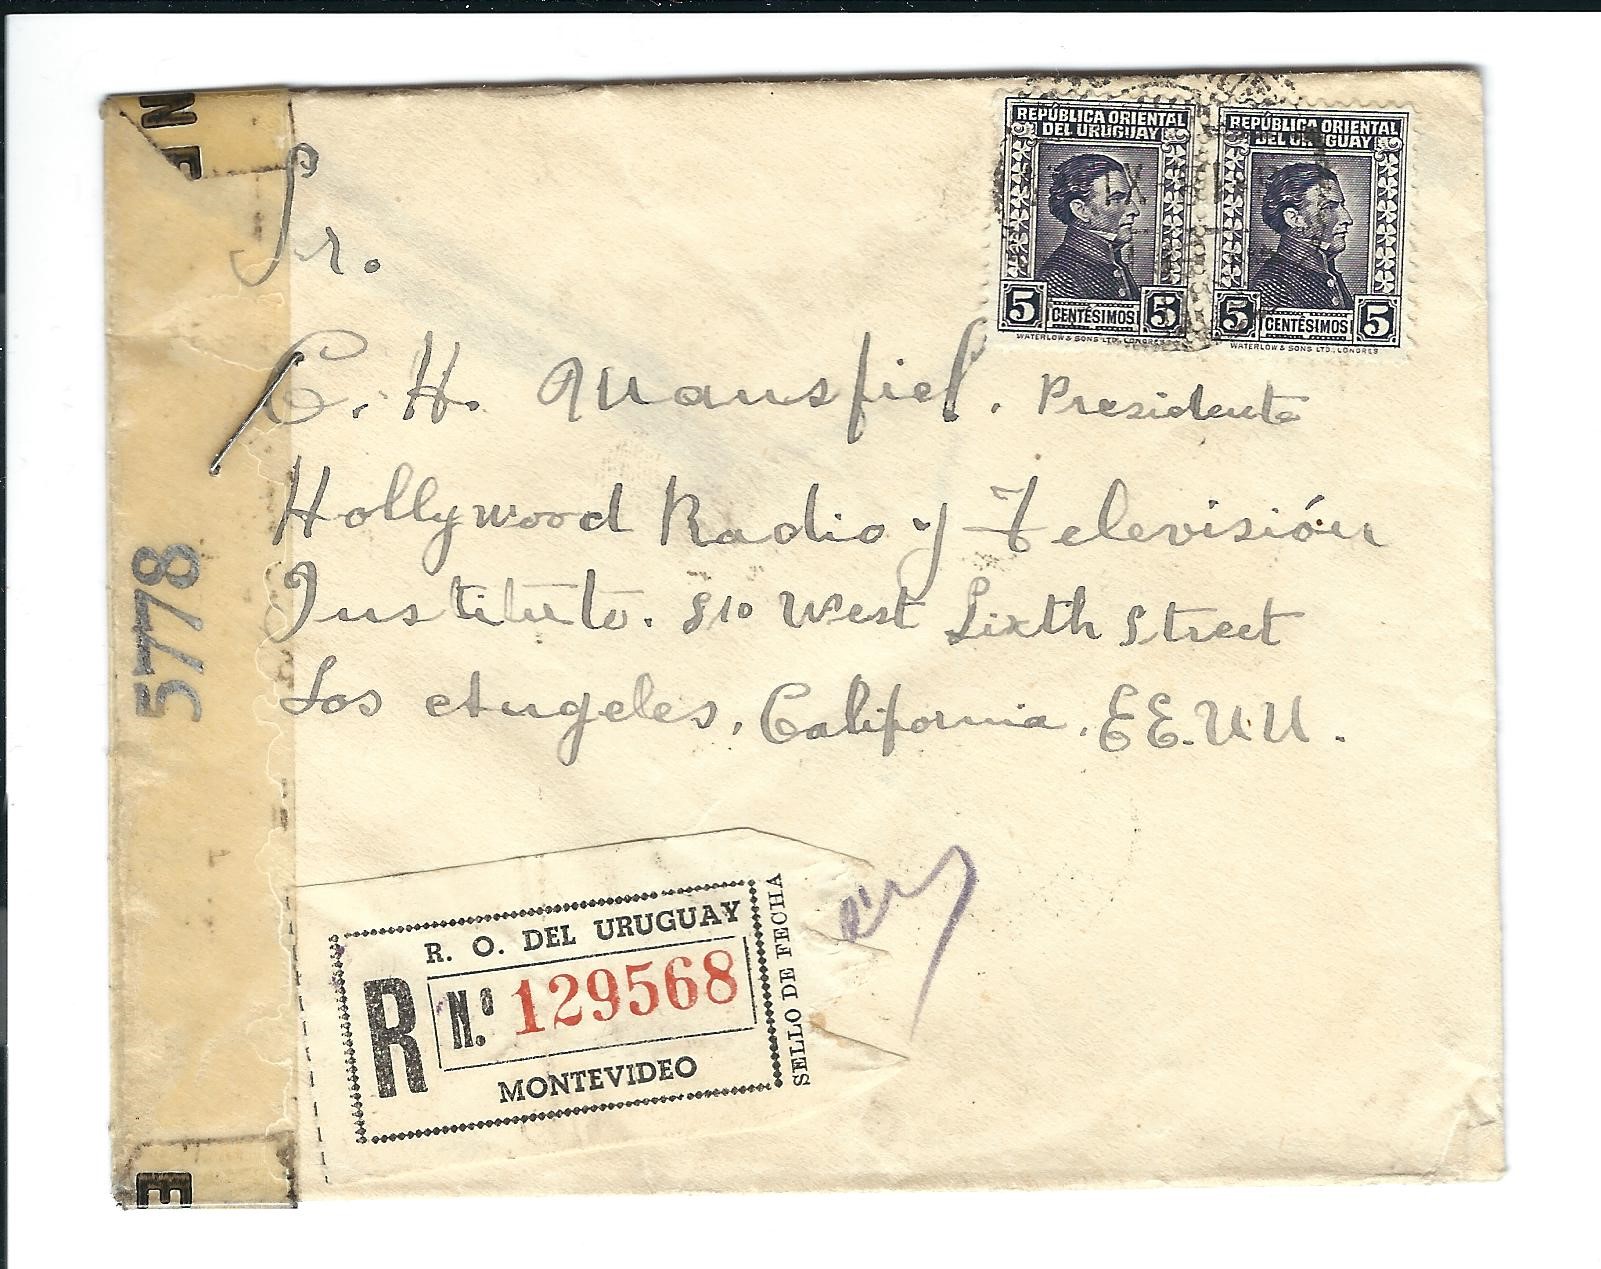 REPÚBLICA ORIENTAL
DEL URUGUAY
5 CENTÉSIMOS 5
WATERLOW & SONS LTD., LONDRES
REPÚBLICA ORIENTAL
DEL URUGUAY
5 CENTÉSIMOS 5
WATERLOW & SONS LTD., LONDRES
Sr.
C. H. Mansfiel. Presidente
Hollywood Radio y Televisión
Instituto. 810 West Sixth Street
Los Angeles, California. EE.UU.
5778
E
R. O. DEL URUGUAY
R N.º 129568
MONTEVIDEO
SELLO DE FECHA